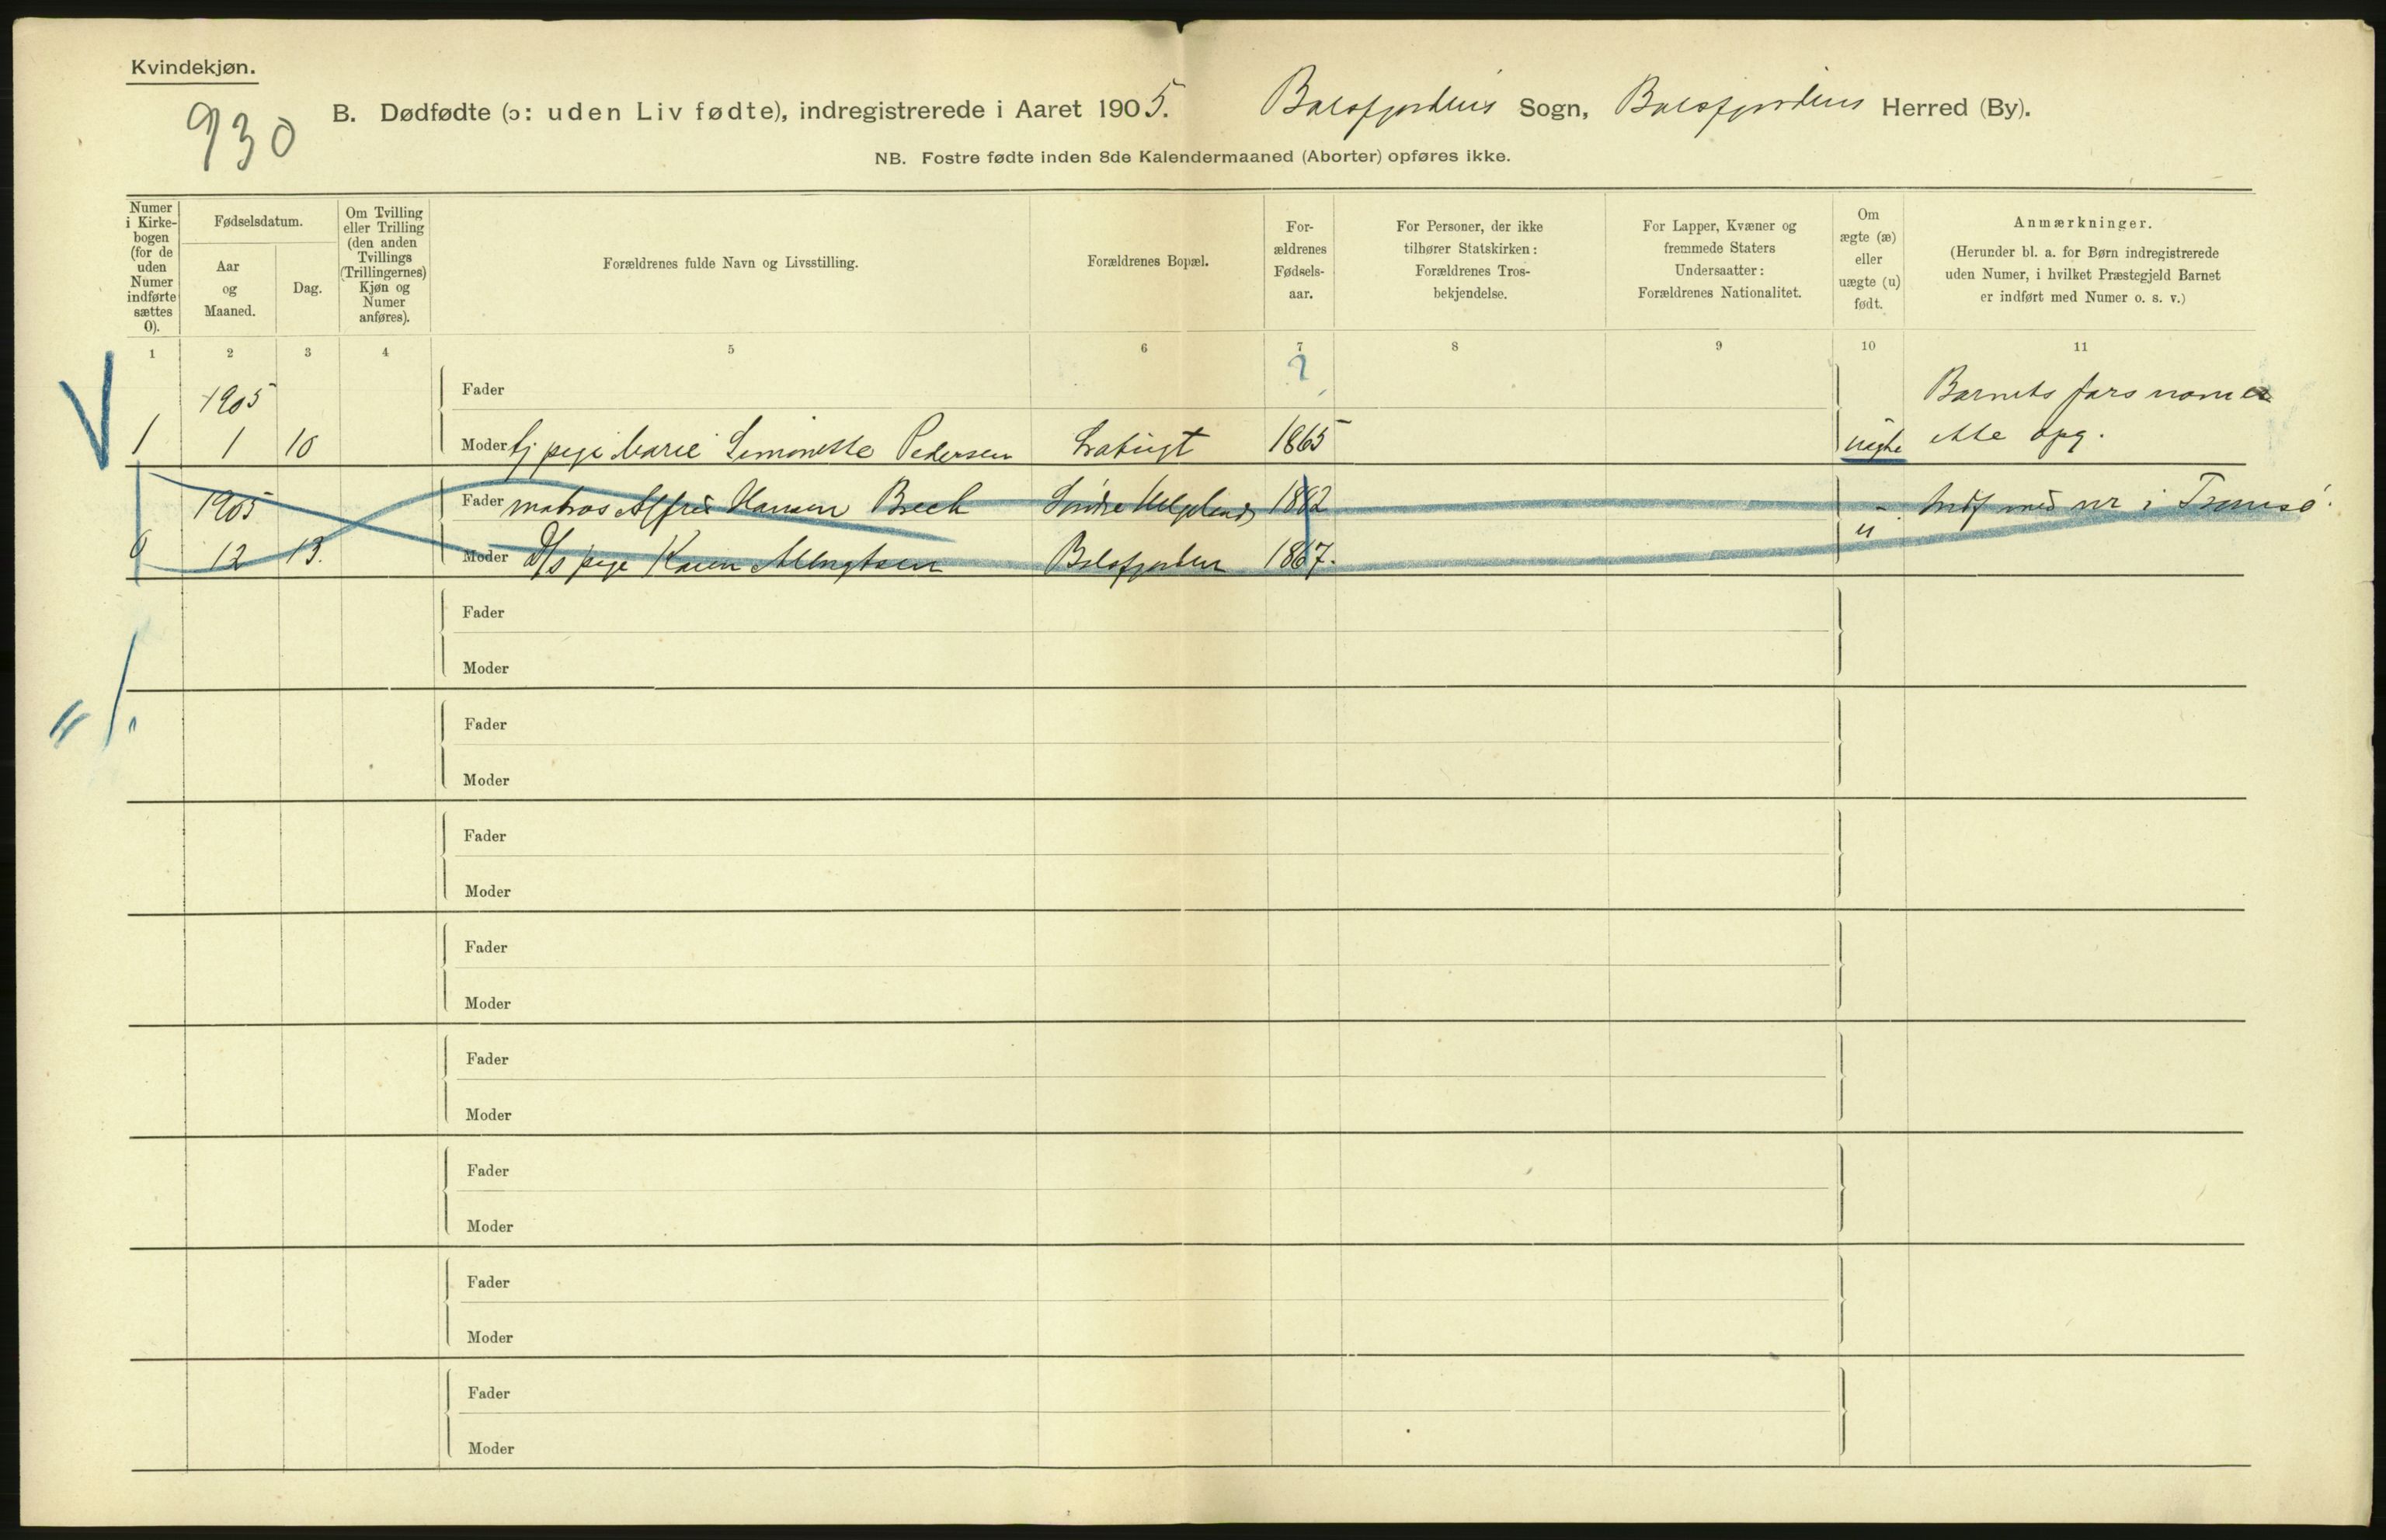 Kvindekjøn.
930
B. Dødfødte (ɔ: uden Liv fødte), indregistrerede i Aaret 1905. Balsfjordens Sogn, Balsfjordens Herred (By).
NB. Fostre fødte inden 8de Kalendermaaned (Aborter) opføres ikke.
Numer i Kirkebogen (for de uden Numer indførte sættes 0).
Fødselsdatum.
Aar og Maaned.
Dag.
Om Tvilling eller Trilling (den anden Tvillings (Trillingernes) Kjøn og Numer anføres).
Forældrenes fulde Navn og Livsstilling.
Forældrenes Bopæl.
Forældrenes Fødselsaar.
For Personer, der ikke tilhører Statskirken: Forældrenes Trosbekjendelse.
For Lapper, Kvæner og fremmede Staters Undersaatter: Forældrenes Nationalitet.
Om ægte (æ) eller uægte (u) født.
Anmærkninger.
(Herunder bl. a. for Børn indregistrerede uden Numer, i hvilket Præstegjeld Barnet er indført med Numer o. s. v.)
1 2 3 4 5 6 7 8 9 10 11
1905 Fader ? Barnets fars navn er
1 1 10 Moder pige Marie Simonette Pedersen 1865 uegte ikke opg.
1905 Fader matros Alfred Hansen Brech Søndre Helgeland 1882 Indf med nr i Tromsø.
0 12 13. Moder pige Karen Balsfjorden 1867. u
Fader
Moder
Fader
Moder
Fader
Moder
Fader
Moder
Fader
Moder
Fader
Moder
Fader
Moder
Fader
Moder